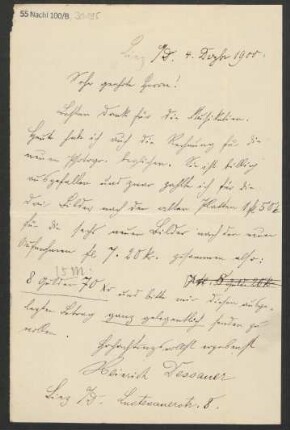 55 Nachl 100/B,
Linz a/D. 4. Dezbr 1900.
Sehr geehrte Herren!
Besten Dank für die Notifikation.
Heute habe ich auch die Rechnung für die
neuen Photogr. beglichen. Sie ist billig
ausgefallen und zwar zahlte ich für die
drei Bilder nach den alten Platten 1 fl 50 k
für die sechs neuen Bilder nach den neuen
Aufnahmen fl. 7. 20 k. zusammen also:
15 M
8 Gulden 70 kr und bitte mir diesen ausge-
legten Betrag ganz gelegentlich senden zu
wollen.
Hochachtungsvollst ergebenst
Heinrich Dessauer
Linz a/D. Lustenauerstr. 8.